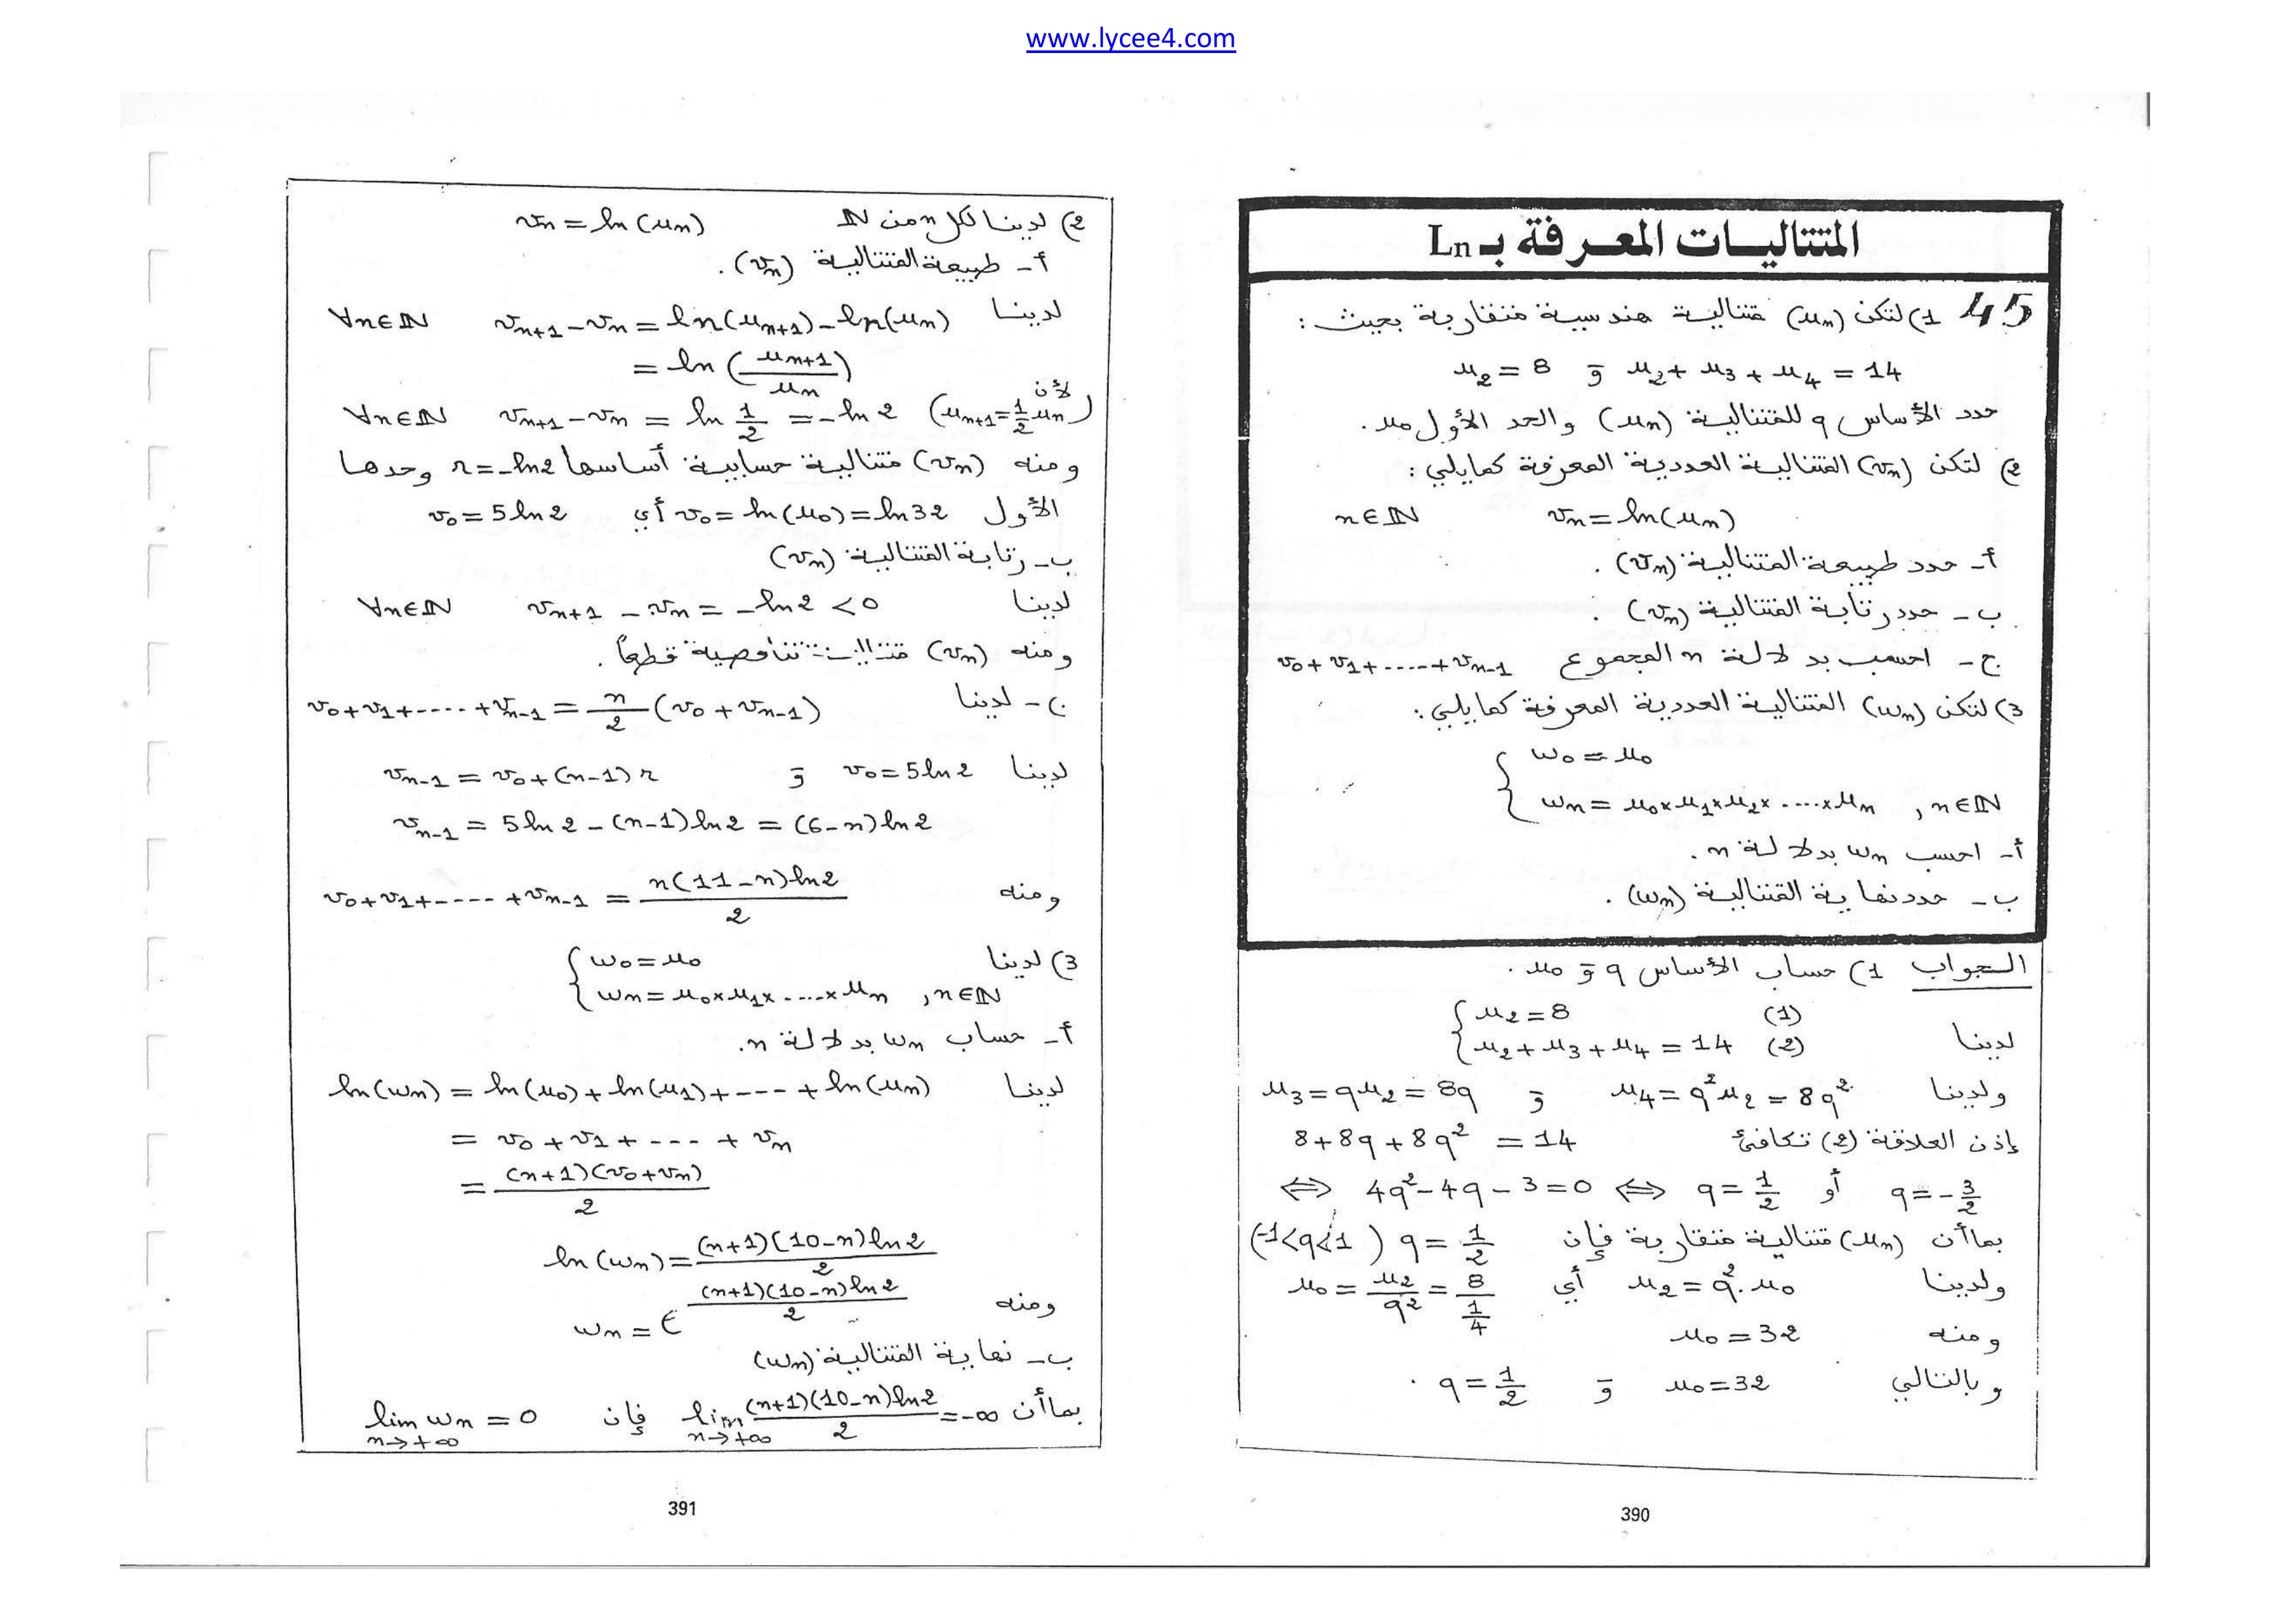 www.lycee4.com
المتتاليات المعرفة بـ Ln
45 1) لتكن (un) متتالية هندسية متقاربة بحيث :
u2 = 8 و u2 + u3 + u4 = 14
حدد الأساس q للمتتالية (un) والحد الأول u0.
2) لتكن (vn) المتتالية العددية المعرفة كمايلي :
vn = ln(un) n∈ℕ
أ- حدد طبيعة المتتالية (vn) .
ب- حدد رتابة المتتالية (vn) .
ج- احسب بدلالة n المجموع v0 + v1 + ..... + vn-1
3) لتكن (wn) المتتالية العددية المعرفة كمايلي :
{ w0 = u0
wn = u0×u1×u2×.....×un , n∈ℕ
أ- احسب wn بدلالة n .
ب- حدد نهاية المتتالية (wn) .
الجواب 1) حساب الأساس q و u0 .
{ u2 = 8 (1)
لدينا u2 + u3 + u4 = 14 (2)
ولدينا u4 = q²u2 = 8q² و u3 = qu2 = 8q
إذن العلاقة (2) تكافئ 8 + 8q + 8q² = 14
⇔ 4q² - 4q - 3 = 0 ⇔ q = 1/2 أو q = -3/2
بماأن (un) متتالية متقاربة فإن q = 1/2 (-1<q<1)
ولدينا u2 = q².u0 أي u0 = u2/q² = 8/(1/4)
ومنه u0 = 32
وبالتالي u0 = 32 و q = 1/2 .
390
2) لدينا لكل n من ℕ vn = ln(un)
أ- طبيعة المتتالية (vn) .
لدينا vn+1 - vn = ln(un+1) - ln(un) ∀n∈ℕ
= ln(un+1/un)
∀n∈ℕ vn+1 - vn = ln 1/2 = -ln2 (لأن un+1 = 1/2 un)
ومنه (vn) متتالية حسابية أساسها r = -ln2 وحدها
الأول v0 = ln(u0) = ln32 أي v0 = 5ln2
ب- رتابة المتتالية (vn)
لدينا vn+1 - vn = -ln2 < 0 ∀n∈ℕ
ومنه (vn) متتالية تناقصية قطعاً .
ج- لدينا v0 + v1 + ..... + vn-1 = n/2 (v0 + vn-1)
لدينا v0 = 5ln2 و vn-1 = v0 + (n-1)r
vn-1 = 5ln2 - (n-1)ln2 = (6-n)ln2
ومنه v0 + v1 + ---- + vn-1 = n(11-n)ln2/2
3) لدينا { w0 = u0
wn = u0×u1×.....×un , n∈ℕ
أ- حساب wn بدلالة n.
لدينا ln(wn) = ln(u0) + ln(u1) + --- + ln(un)
= v0 + v1 + --- + vn
= (n+1)(v0+vn)/2
ln(wn) = (n+1)(10-n)ln2/2
ومنه wn = e^((n+1)(10-n)ln2/2)
ب- نهاية المتتالية (wn)
بماأن lim n→+∞ (n+1)(10-n)ln2/2 = -∞ فإن lim n→+∞ wn = 0
391